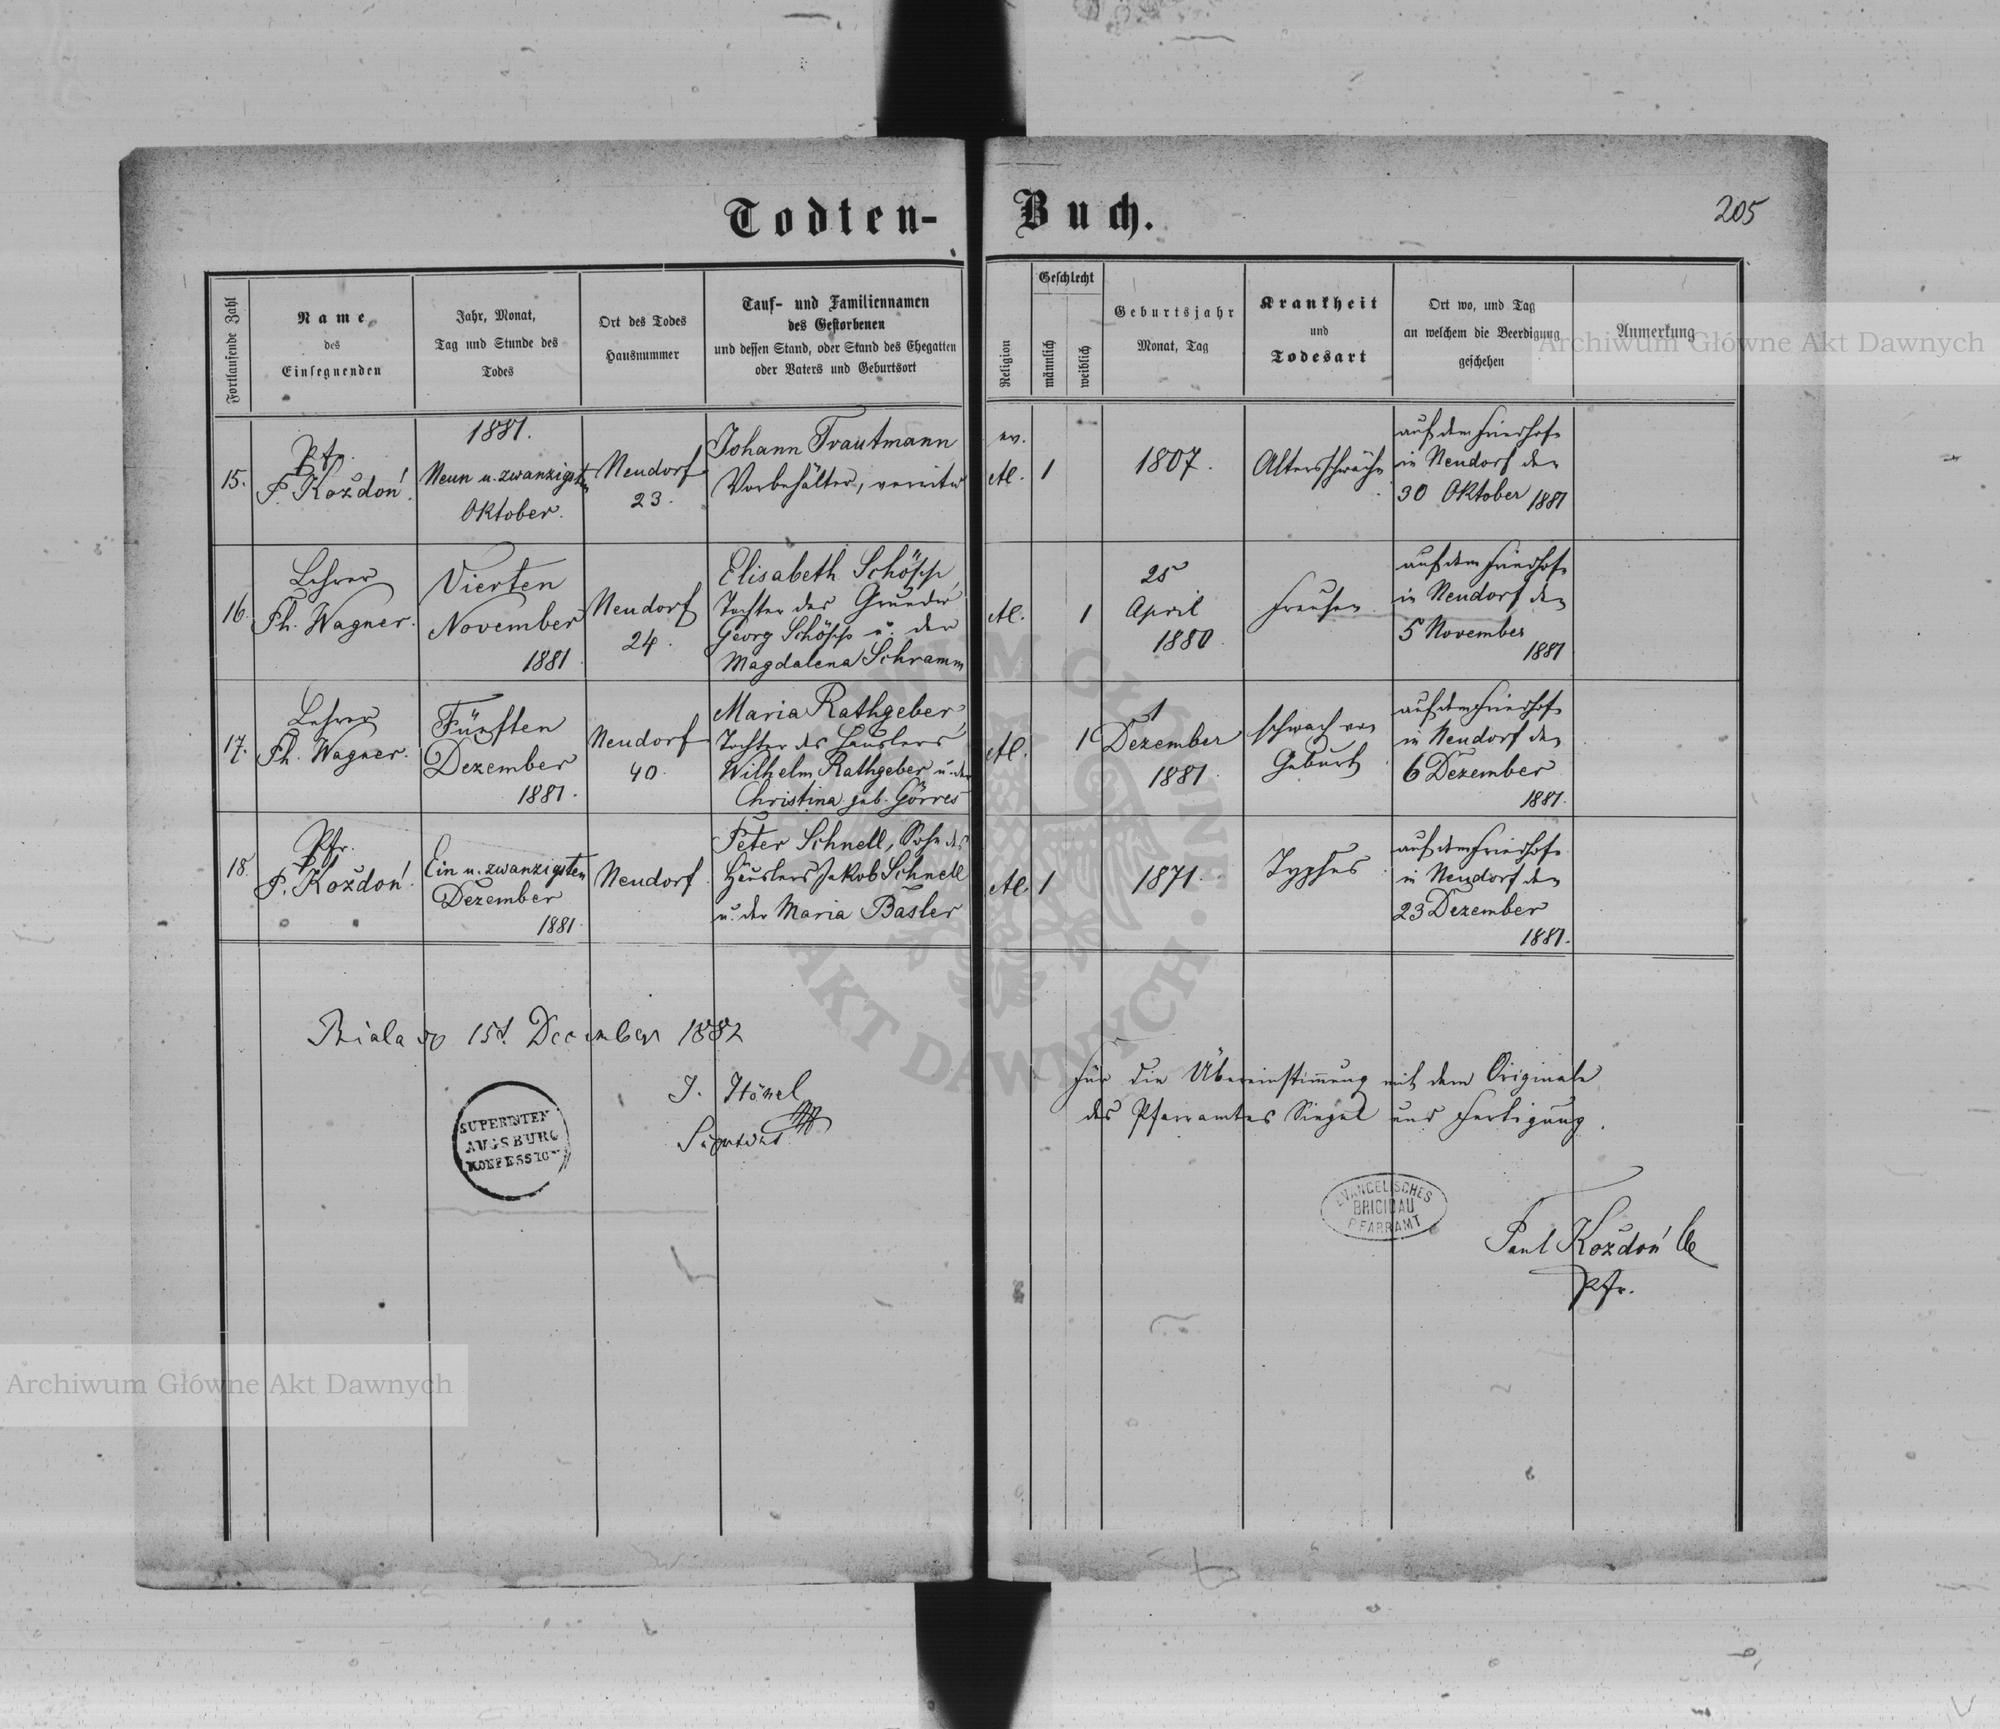 Todten-Buch.
205
Fortlaufende Zahl
Name
des
Einsegnenden
Jahr, Monat,
Tag und Stunde des
Todes
Ort des Todes
Hausnummer
Tauf- und Familiennamen
des Gestorbenen
und dessen Stand, oder Stand des Ehegatten
oder Vaters und Geburtsort
Religion
Geschlecht
männlich
weiblich
Geburtsjahr
Monat, Tag
Krankheit
und
Todesart
Ort wo, und Tag
an welchem die Beerdigung
geschehen
Anmerkung
15.
Pfr.
P. Koždoń.
1881.
Neun u. zwanzigsten
Oktober.
Neudorf
23.
Johann Trautmann
Vorbehälter,
ev.
AC.
1
1807.
Altersschwäche
auf dem Friedhofe
in Neudorf den
30 Oktober 1881
16.
Lehrer
Ph. Wagner.
Vierten
November
1881
Neudorf
24.
Elisabeth Schöpp,
Tochter des Grundw
Georg Schöpp u. der
Magdalena Schramm
AC.
1
25
April
1880.
Freusen
auf dem Friedhofe
in Neudorf den
5 November
1881
17.
Lehrer
Ph. Wagner.
Fünften
Dezember
1881.
Neudorf
40.
Maria Rathgeber,
Tochter des Häuslers
Wilhelm Rathgeber u. der
Christina geb. Görres
AC.
1
1
Dezember
1881.
schwach von
Geburt
auf dem Friedhofe
in Neudorf den
6 Dezember
1881.
18.
Pfr.
P. Koždoń.
Ein u. zwanzigsten
Dezember
1881.
Neudorf.
Peter Schnell, Sohn des
Häuslers Jakob Schnell
u. der Maria Basler
AC.
1
1871.
Typhus
auf dem Friedhofe
in Neudorf den
23 Dezember
1881.
Biala 15t. December 1882
J. Hönel
Suptdt.
SUPERINTEN
AUGSBURG
KONFESSION
Für die Übereinstimmung mit dem Originale
des Pfarramtes Siegel und Fertigung.
EVANGELISCHES
BRIGIDAU
PFARRAMT
Paul Koždoń
Pfr.
Archiwum Główne Akt Dawnych
Archiwum Główne Akt Dawnych